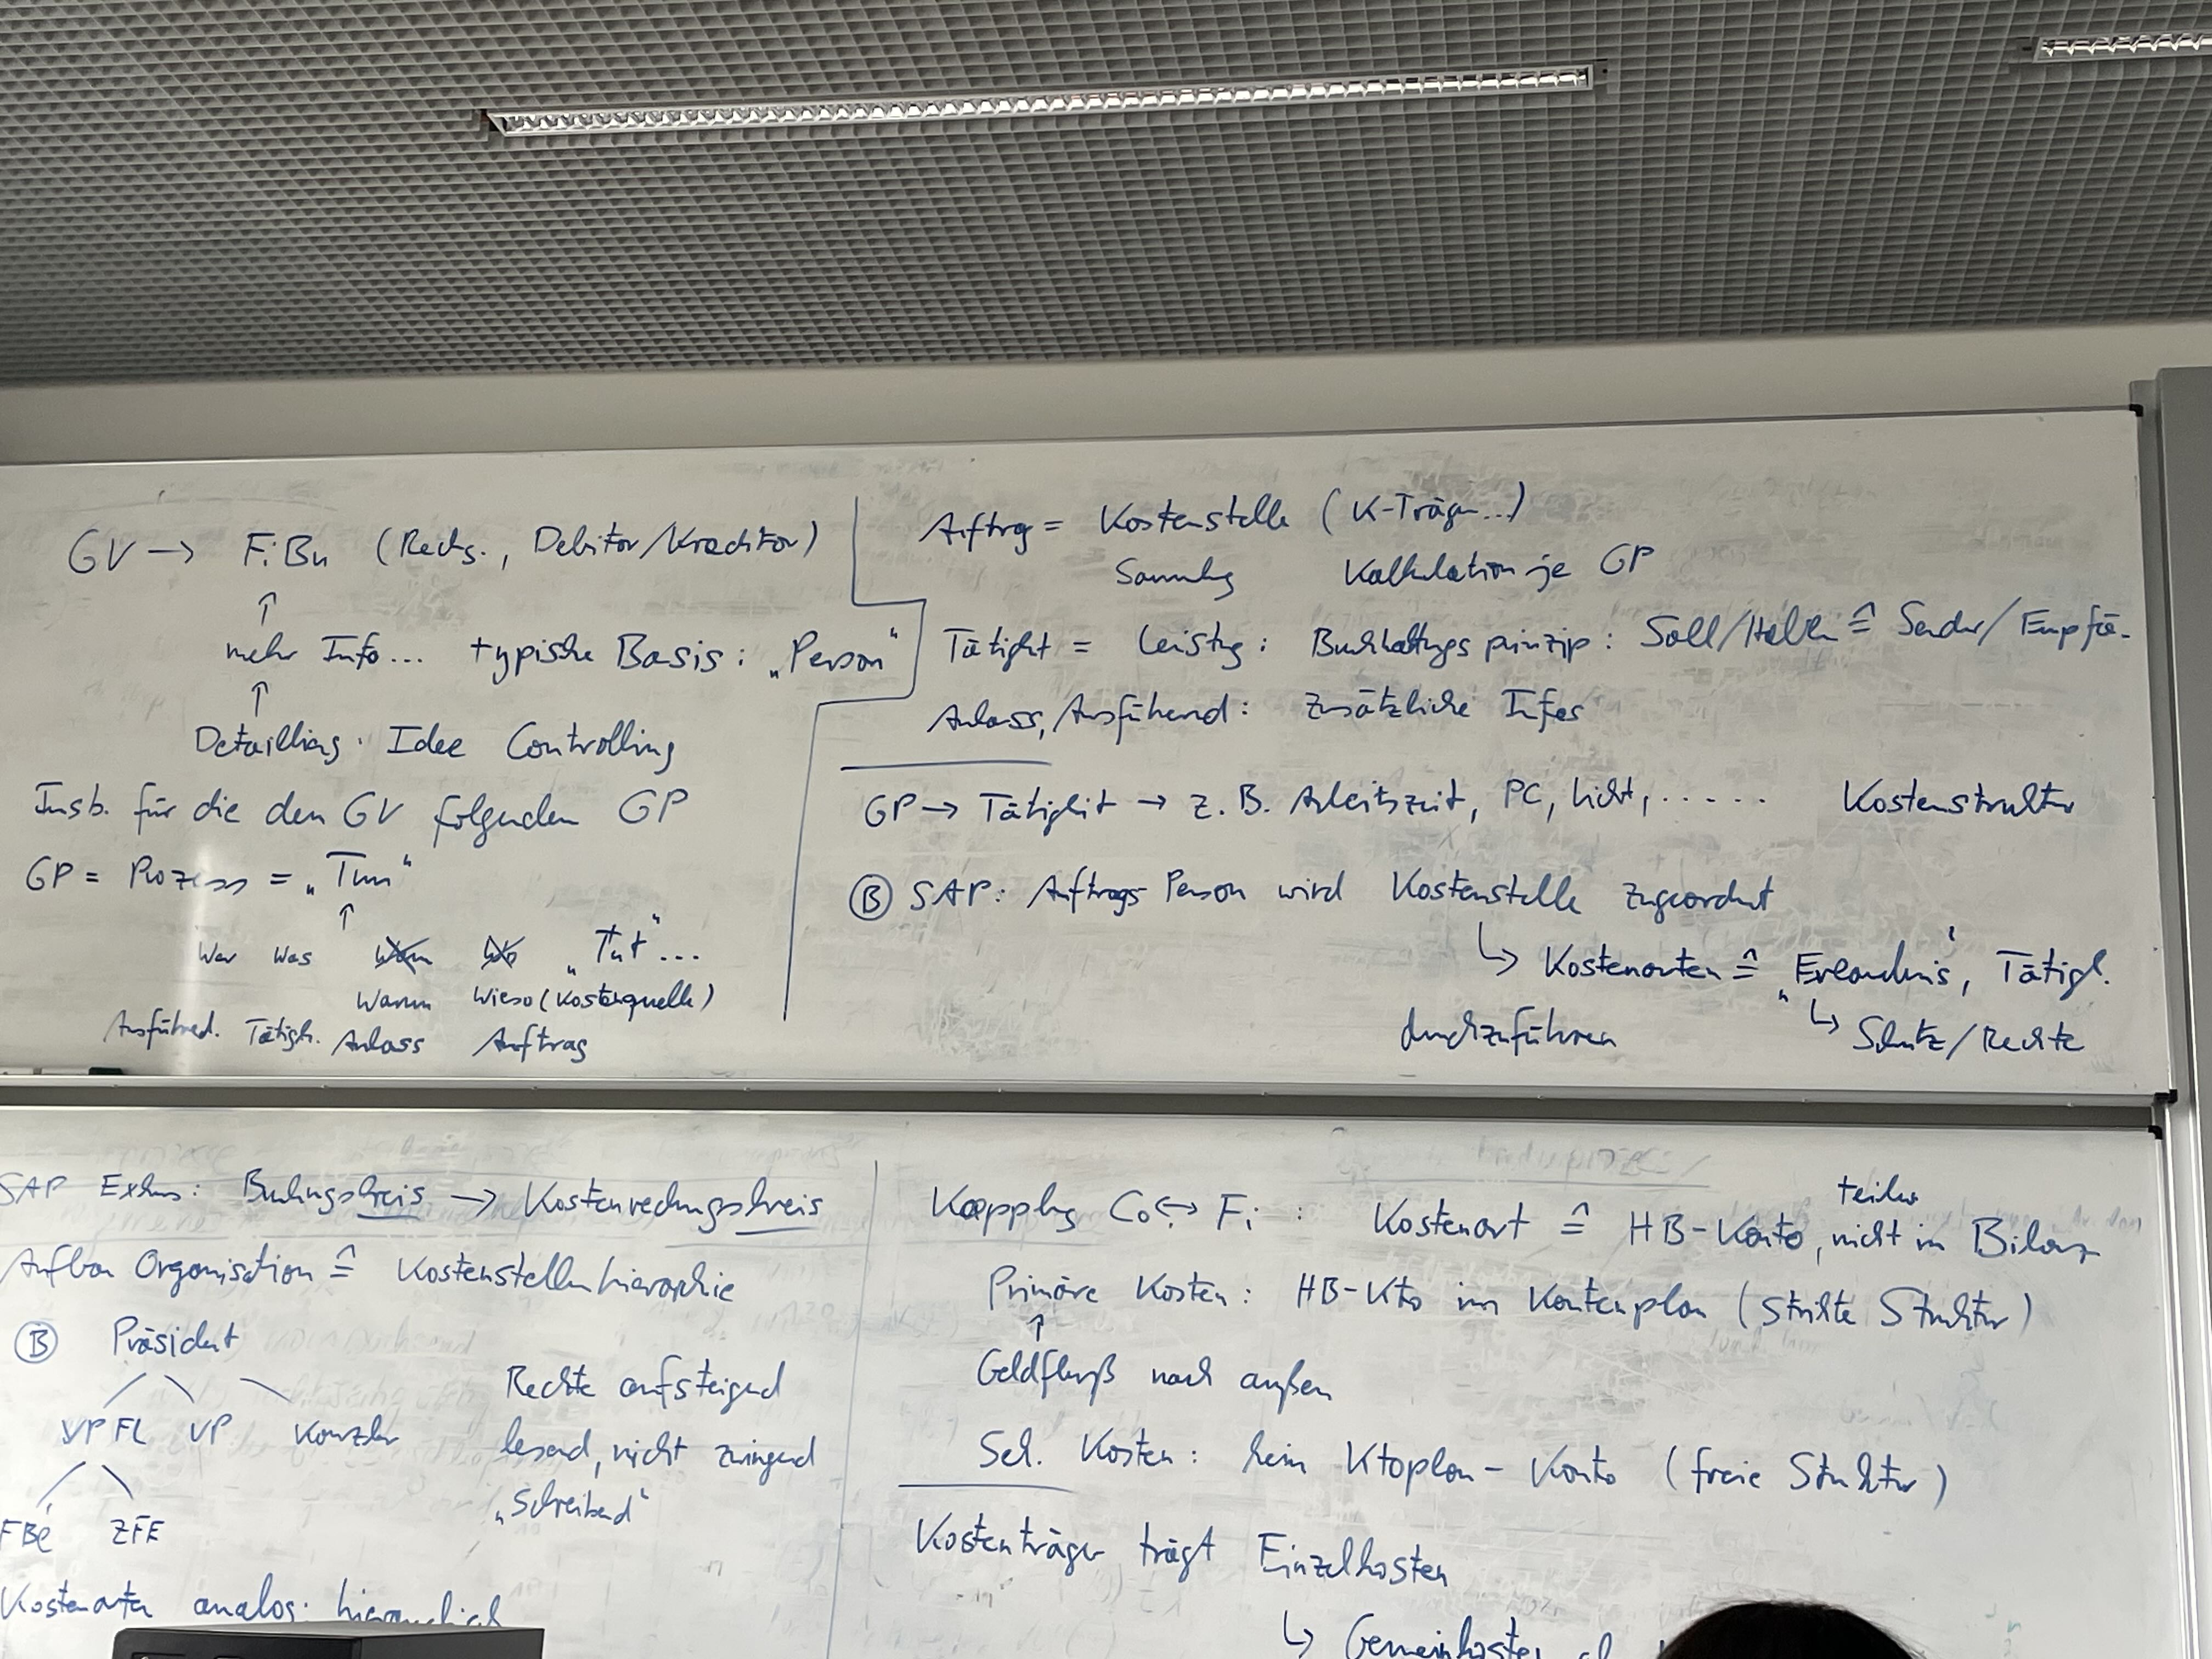 GV → FiBu (Rechg., Debitor/Kreditor)
↑
mehr Info... typische Basis: „Person“
↑
Detaillierg. Idee Controlling
Insb. für die den GV folgenden GP
GP = Prozess = „Tun“
↑
Wer Was Wann Wo „Tut“...
Warum Wieso (Kostenquelle)
Ausführend. Tätigk. Anlass Auftrag
Auftrag = Kostenstelle (K-Träger...)
Sammlg Kalkulation je GP
Tätigkt = Leistg: Buchhaltungsprinzip: Soll/Haben ≙ Sender/Empfä-
Anlass, Ausführend: zusätzliche Infos
GP → Tätigkeit → z.B. Arbeitszeit, PC, Licht, ...... Kostenstruktur
Ⓑ SAP: Auftrags-Person wird Kostenstelle zugeordnet
↳ Kostenarten ≙ „Erlaubnis, Tätigk.
durchzuführen ↳ Schutz/Rechte
SAP Exkurs: Buchungskreis → Kostenrechnungskreis
Aufbau Organisation ≙ Kostenstellenhierarchie
Ⓑ Präsident
VP FL VP Kanzler
FBe ZFE
Rechte aufsteigend
lesend, nicht zwingend
„Schreibend“
Kostenarten analog: hierarchisch
Kopplg Co ↔ Fi : Kostenart ≙ HB-Konto, teilw nicht in Bilanz
Primäre Kosten: HB-Kto im Kontenplan (strikte Struktur)
↑
Geldfluß nach außen
Sek. Kosten: kein Ktoplan-Konto (freie Struktur)
Kostenträger trägt Einzelkosten
↳ Gemeinkosten